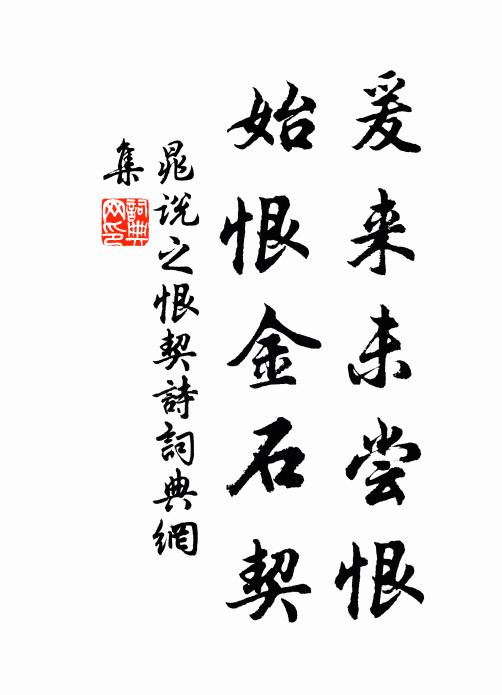 爰来未尝恨
始恨金石契
晁说之恨契詩詞典網
集
詞典网印